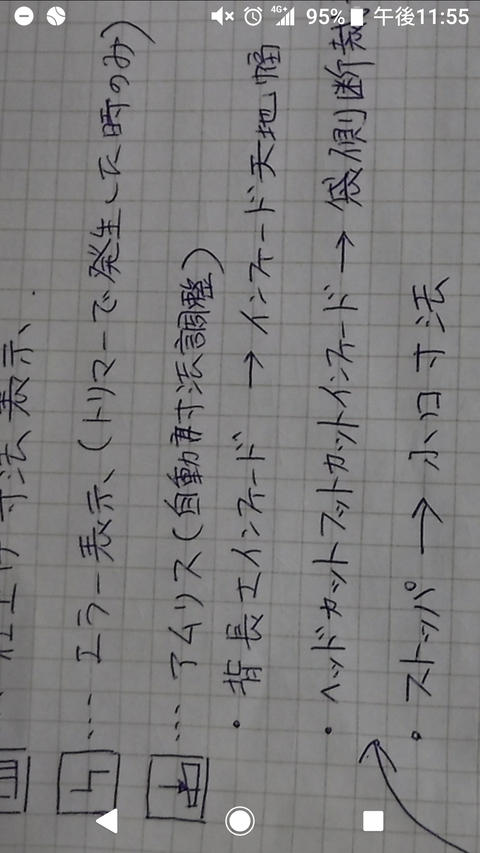 95% 午後11:55
仕上げ寸法表示、
… エラー表示、(トリマーで発生した時のみ)
… アムリス(自動寸法調整)
・背長エインフィード → インフィード天地幅
・ヘッドカットフットカットインフィード → 袋側断裁
・ストッパ → 小口寸法